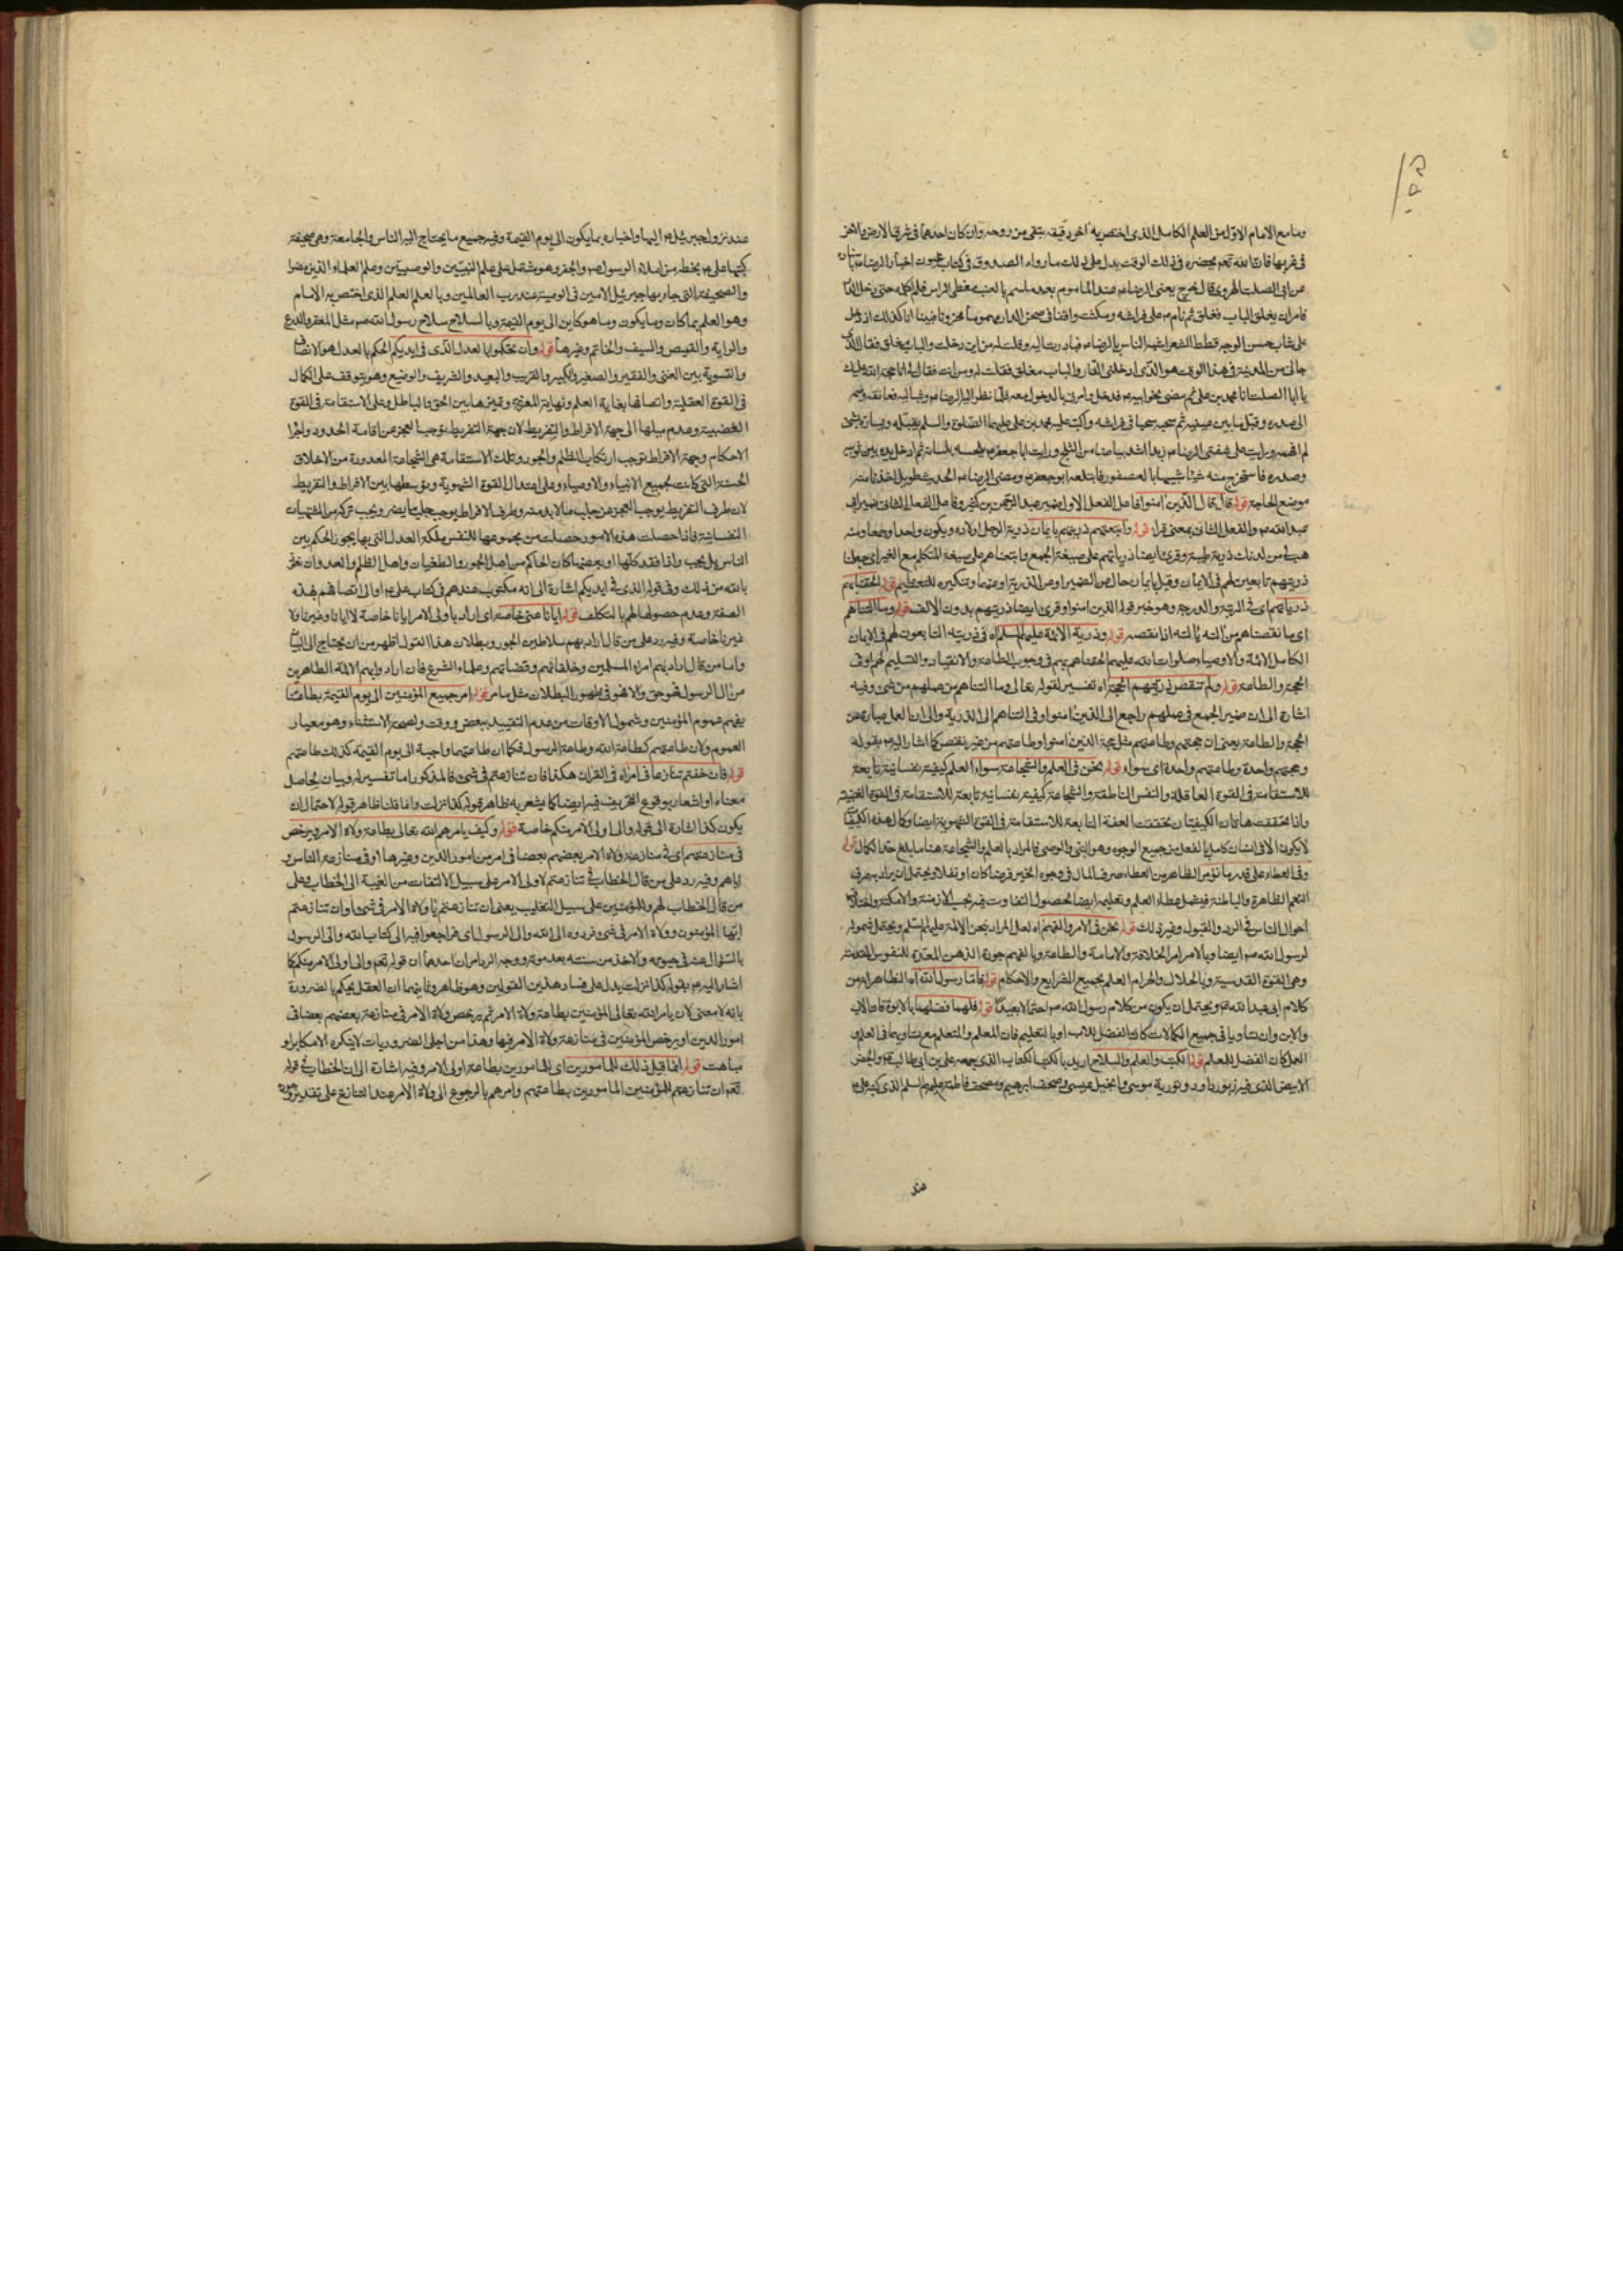 وما مع الامام الاول من العلم الكامل الذى اختص به اخر دقيقه تبقى من روحه وان كان احدهما فى شرق الارض والاخر
فى غربها فان الله تعم يحضره فى ذلك الوقت يدل على ذلك ما رواه الصدوق فى كتاب عيون اخبار الرضا
عن ابى الصلت الهروى قال خرج يعنى الرضا من عند المأموم بعد ما سم بالعنب مغطى الراس فلم اكلمه حتى دخل الدار
فامر ان يغلق الباب فغلق ثم نام على فراشه ومكثت واقفا فى صحن الدار مهموما محزونا فبينا انا كذلك اذ دخل
على شاب حسن الوجه قطط الشعر اشبه الناس بالرضا فبادرت اليه وقلت له من اين دخلت والباب مغلق فقال الذى
جائنى من المدينة فى هذا الوقت هو الذى ادخلنى الدار والباب مغلق فقلت له ومن انت فقال لى انا حجة الله عليك
يا ابا الصلت انا محمد بن على ثم مضى نحو ابيه فدخل وامرنى بالدخول معه فلما نظر اليه الرضا وثب اليه فعانقه وضمه
الى صدره وقبل ما بين عينيه ثم سحبه سحبا فى فراشه واكب عليه محمد بن على عليهما الصلوة والسلم يقبله ويساره بشئ
لم افهمه ورايت على شفتى الرضا زبدا اشد بياضا من الثلج ورايت ابا جعفر يلحسه بلسانه ثم ادخل يده بين ثوبيه
وصدره فاستخرج منه شيئا شبيها بالعصفور فابتلعه ابو جعفر ومضى الرضا الحديث طويل اخذنا منه
موضع الحاجة قوله قال قال الذين امنوا فاعل الفعل الاول ضمير عبد الرحمن بن كثير وفاعل الفعل الثانى ضمير ابى
عبد الله والفعل الثانى بمعنى قرا قوله واتبعتهم ذريتهم بايمان ذرية الرجل اولاده ويكون واحدا وجمعا ومنه
هب لى من لدنك ذرية طيبة وقرئ ايضا ذرياتهم على صيغة الجمع واتبعناهم على صيغة المتكلم مع الغير اى جعلنا
ذريتهم تابعين لهم فى الايمان وقيل بايمان حال من الضمير او من الذرية او منهما وتنكيره للتعظيم قوله الحقنا بهم
ذرياتهم اى فى الرتبة والدرجة وهو خبر قوله الذين امنوا وقرئ ايضا ذريتهم بدون الالف قوله وما التناهم
اى ما نقصناهم من النه يالته اذا نقصه قوله وذرية الائمة عليهم السلم اه فى ذريته التابعون لهم فى الايمان
الكامل الائمة والاوصياء صلوات الله عليهم الحقناهم بهم فى وجوب الطاعة والانقياد والتسليم لهم او فى
الحجة والطاعة قوله ولم تنقص ذريتهم الحجة اه تفسير لقوله تعالى وما التناهم من عملهم من شئ وفيه
اشارة الى ان ضمير الجمع فى عملهم راجع الى الذين امنوا وفى التناهم الى الذرية والى ان العمل عبارة عن
الحجة والطاعة يعنى ان حجتهم وطاعتهم مثل حجة الذين امنوا وطاعتهم من غير نقص كما اشار اليه بقوله
وحجتهم واحدة وطاعتهم واحدة اى سواء قوله نحن فى العلم والشجاعة سواء العلم كيفية نفسانية تابعة
للاستقامة فى القوة العاقلة والنفس الناطقة والشجاعة كيفية نفسانية تابعة للاستقامة فى القوة الغضبية
واذا تحققت هاتان الكيفيتان تحققت العفة التابعة للاستقامة فى القوة الشهوية ايضا وكمال هذه الكيفيات
لا يكون الا فى انسان كامل بالفعل من جميع الوجوه وهو النبى والوصى فالمراد بالعلم والشجاعة هنا ما بلغ حد الكمال قوله
وفى العطاء على قدر ما نؤمر الظاهر من العطاء صرف المال فى وجوه الخير فرضا كان او نفلا ويحتمل ان يراد به صرف
النعم الظاهرة والباطنة فيشمل عطاء العلم وتعليمه ايضا لحصول التفاوت فيه بحسب الازمنة والامكنة واختلاف
احوال الناس فى الرد والقبول وغير ذلك قوله نحن فى الامر والفهم اه لعل المراد بنحن الائمة عليهم السلم ويحتمل شموله
لرسول الله ص ايضا وبالامر امر الخلافة والامامة والطاعة وبالفهم جودة الذهن المعدة للنفوس المقدسة
وهى القوة القدسية وبالحلال والحرام العلم بجميع الشرايع والاحكام قوله فاما رسول الله اه الظاهر انه من
كلام ابى عبد الله ويحتمل ان يكون من كلام رسول الله ص احتمالا بعيدا قوله فلهما فضلهما بالابوة فان الاب
والابن وان تساويا فى جميع الكمالات كان الفضل للاب او بالتعليم فان المعلم والمتعلم مع تساويهما فى العلم و
العمل كان الفضل للمعلم قوله الكتب والعلم والسلاح اريد بالكتب الكتاب الذى جمعه على بن ابى طالب والجفر
الابيض الذى فيه زبور داود وتورية موسى وانجيل عيسى وصحف ابرهيم ومصحف فاطمة عليهم السلم الذى كتبه على
عند
عند نزول جبرئيل اليها واخباره بما يكون الى يوم القيمة وفيه جميع ما يحتاج اليه الناس والجامعة وهى صحيفة
كتبها على بخطه من املاء الرسول ص والجفر وهو مشتمل على علم النبيين والوصيين وعلم العلماء الذين مضوا
والصحيفة التى جاء بها جبرئيل الامين فى الوصية عند رب العالمين وبالعلم العلم الذى اختص به الامام
وهو العلم بما كان وما يكون وما هو كاين الى يوم القيمة وبالسلاح سلاح رسول الله ص مثل المغفر والدرع
والراية والقميص والسيف والخاتم وغيرها قوله وان تحكموا بالعدل الذى فى ايديكم الحكم بالعدل هو الانصاف
والتسوية بين الغنى والفقير والصغير والكبير والقريب والبعيد والشريف والوضيع وهو يتوقف على الكمال
فى القوة العقلية واتصافها بغاية العلم ونهاية المعرفة وتميزها بين الحق والباطل وعلى الاستقامة فى القوة
الغضبية وعدم ميلها الى جهة الافراط والتفريط لان جهة التفريط توجب العجز عن اقامة الحدود واجراء
الاحكام وجهة الافراط توجب ارتكاب الظلم والجور وتلك الاستقامة هى الشجاعة المعدودة من الاخلاق
الحسنة التى كانت لجميع الانبياء والاوصياء وعلى اعتدال القوة الشهوية وتوسطها بين الافراط والتفريط
لان طرف التفريط يوجب العجز عن جلب ما لا بد منه وطرف الافراط يوجب جلب ما يضر ويجب تركه من المشتهيات
النفسانية فاذا حصلت هذه الامور حصلت من مجموعها للنفس ملكة العدل التى بها يجوز الحكم بين
الناس بل يجب واذا فقد كلها او بعضها كان الحاكم من اهل الجور والطغيان واهل الظلم والعدوان نعوذ
بالله من ذلك وفى قوله الذى فى ايديكم اشارة الى انه مكتوب عندهم فى كتاب على او الى اتصافهم بهذه
الصفة وعدم حصولها لهم بالتكلف قوله ايانا عنى خاصة اى اراد باولى الامر ايانا خاصة لا ايانا وغيرنا ولا
غيرنا خاصة وفيه رد على من قال اراد بهم سلاطين الجور وبطلان هذا القول اظهر من ان يحتاج الى البيان
واما من قال اراد بهم امراء المسلمين وخلفائهم وقضاتهم وعلماء الشرع فان ارادوا بهم الائمة الطاهرين
من ال الرسول فهو حق والا فهو فى ظهور البطلان مثل ما مر قوله امر جميع المؤمنين الى يوم القيمة بطاعتنا
يفهم عموم المؤمنين وشمول الاوقات من عدم التقييد ببعض ووقت ولصحة الاستثناء وهو معيار
العموم ولان طاعتهم كطاعة الله وطاعة الرسول فكما ان طاعتهما واجبة الى يوم القيمة كذلك طاعتهم
قوله فان خفتم تنازعا فى امر اه فى القران هكذا فان تنازعتم فى شئ فالمذكور اما تفسير له وبيان لحاصل
معناه او اشعار بوقوع التحريف فيه ايضا كما يشعر به ظاهر قوله كذا نزلت وانما قلنا ظاهر قوله لاحتمال ان
يكون كذا اشارة الى قوله والى اولى الامر منكم خاصة قوله وكيف يامرهم الله تعالى بطاعة ولاة الامر ويرخص
فى منازعتهم اى فى منازعة ولاة الامر بعضهم بعضا فى امر من امور الدين وغيرها او فى منازعة الناس و
اياهم وفيه رد على من قال الخطاب فى تنازعتم لاولى الامر على سبيل الالتفات من الغيبة الى الخطاب وعلى
من قال الخطاب لهم وللمؤمنين على سبيل التغليب يعنى ان تنازعتم يا ولاة الامر فى شئ او ان تنازعتم
ايها المؤمنون وولاة الامر فى شئ فردوه الى الله والى الرسول اى فراجعوا فيه الى كتاب الله والى الرسول
بالسؤال عنه فى حيوته والاخذ من سنته بعد موته ووجه الرد امران احدهما ان قوله تعم والى اولى الامر منكم كما
اشار اليه بقوله كذا نزلت يدل على فساد هذين القولين وهو ظاهر وثانيهما ان العقل يحكم بالضرورة
بانه لا معنى لان يامر الله تعالى المؤمنين بطاعة ولاة الامر ثم يرخص ولاة الامر فى منازعة بعضهم بعضا فى
امور الدين او يرخص المؤمنين فى منازعة ولاة الامر فيها وهذا من اجلى الضروريات لا ينكره الا مكابر او
مباهت قوله انما قيل ذلك للمأمورين اى للمامورين بطاعة اولى الامر وفيه اشارة الى ان الخطاب فى قوله
تعم ان تنازعتم للمؤمنين المامورين بطاعتهم وامرهم بالرجوع الى ولاة الامر عند التنازع على تقدير